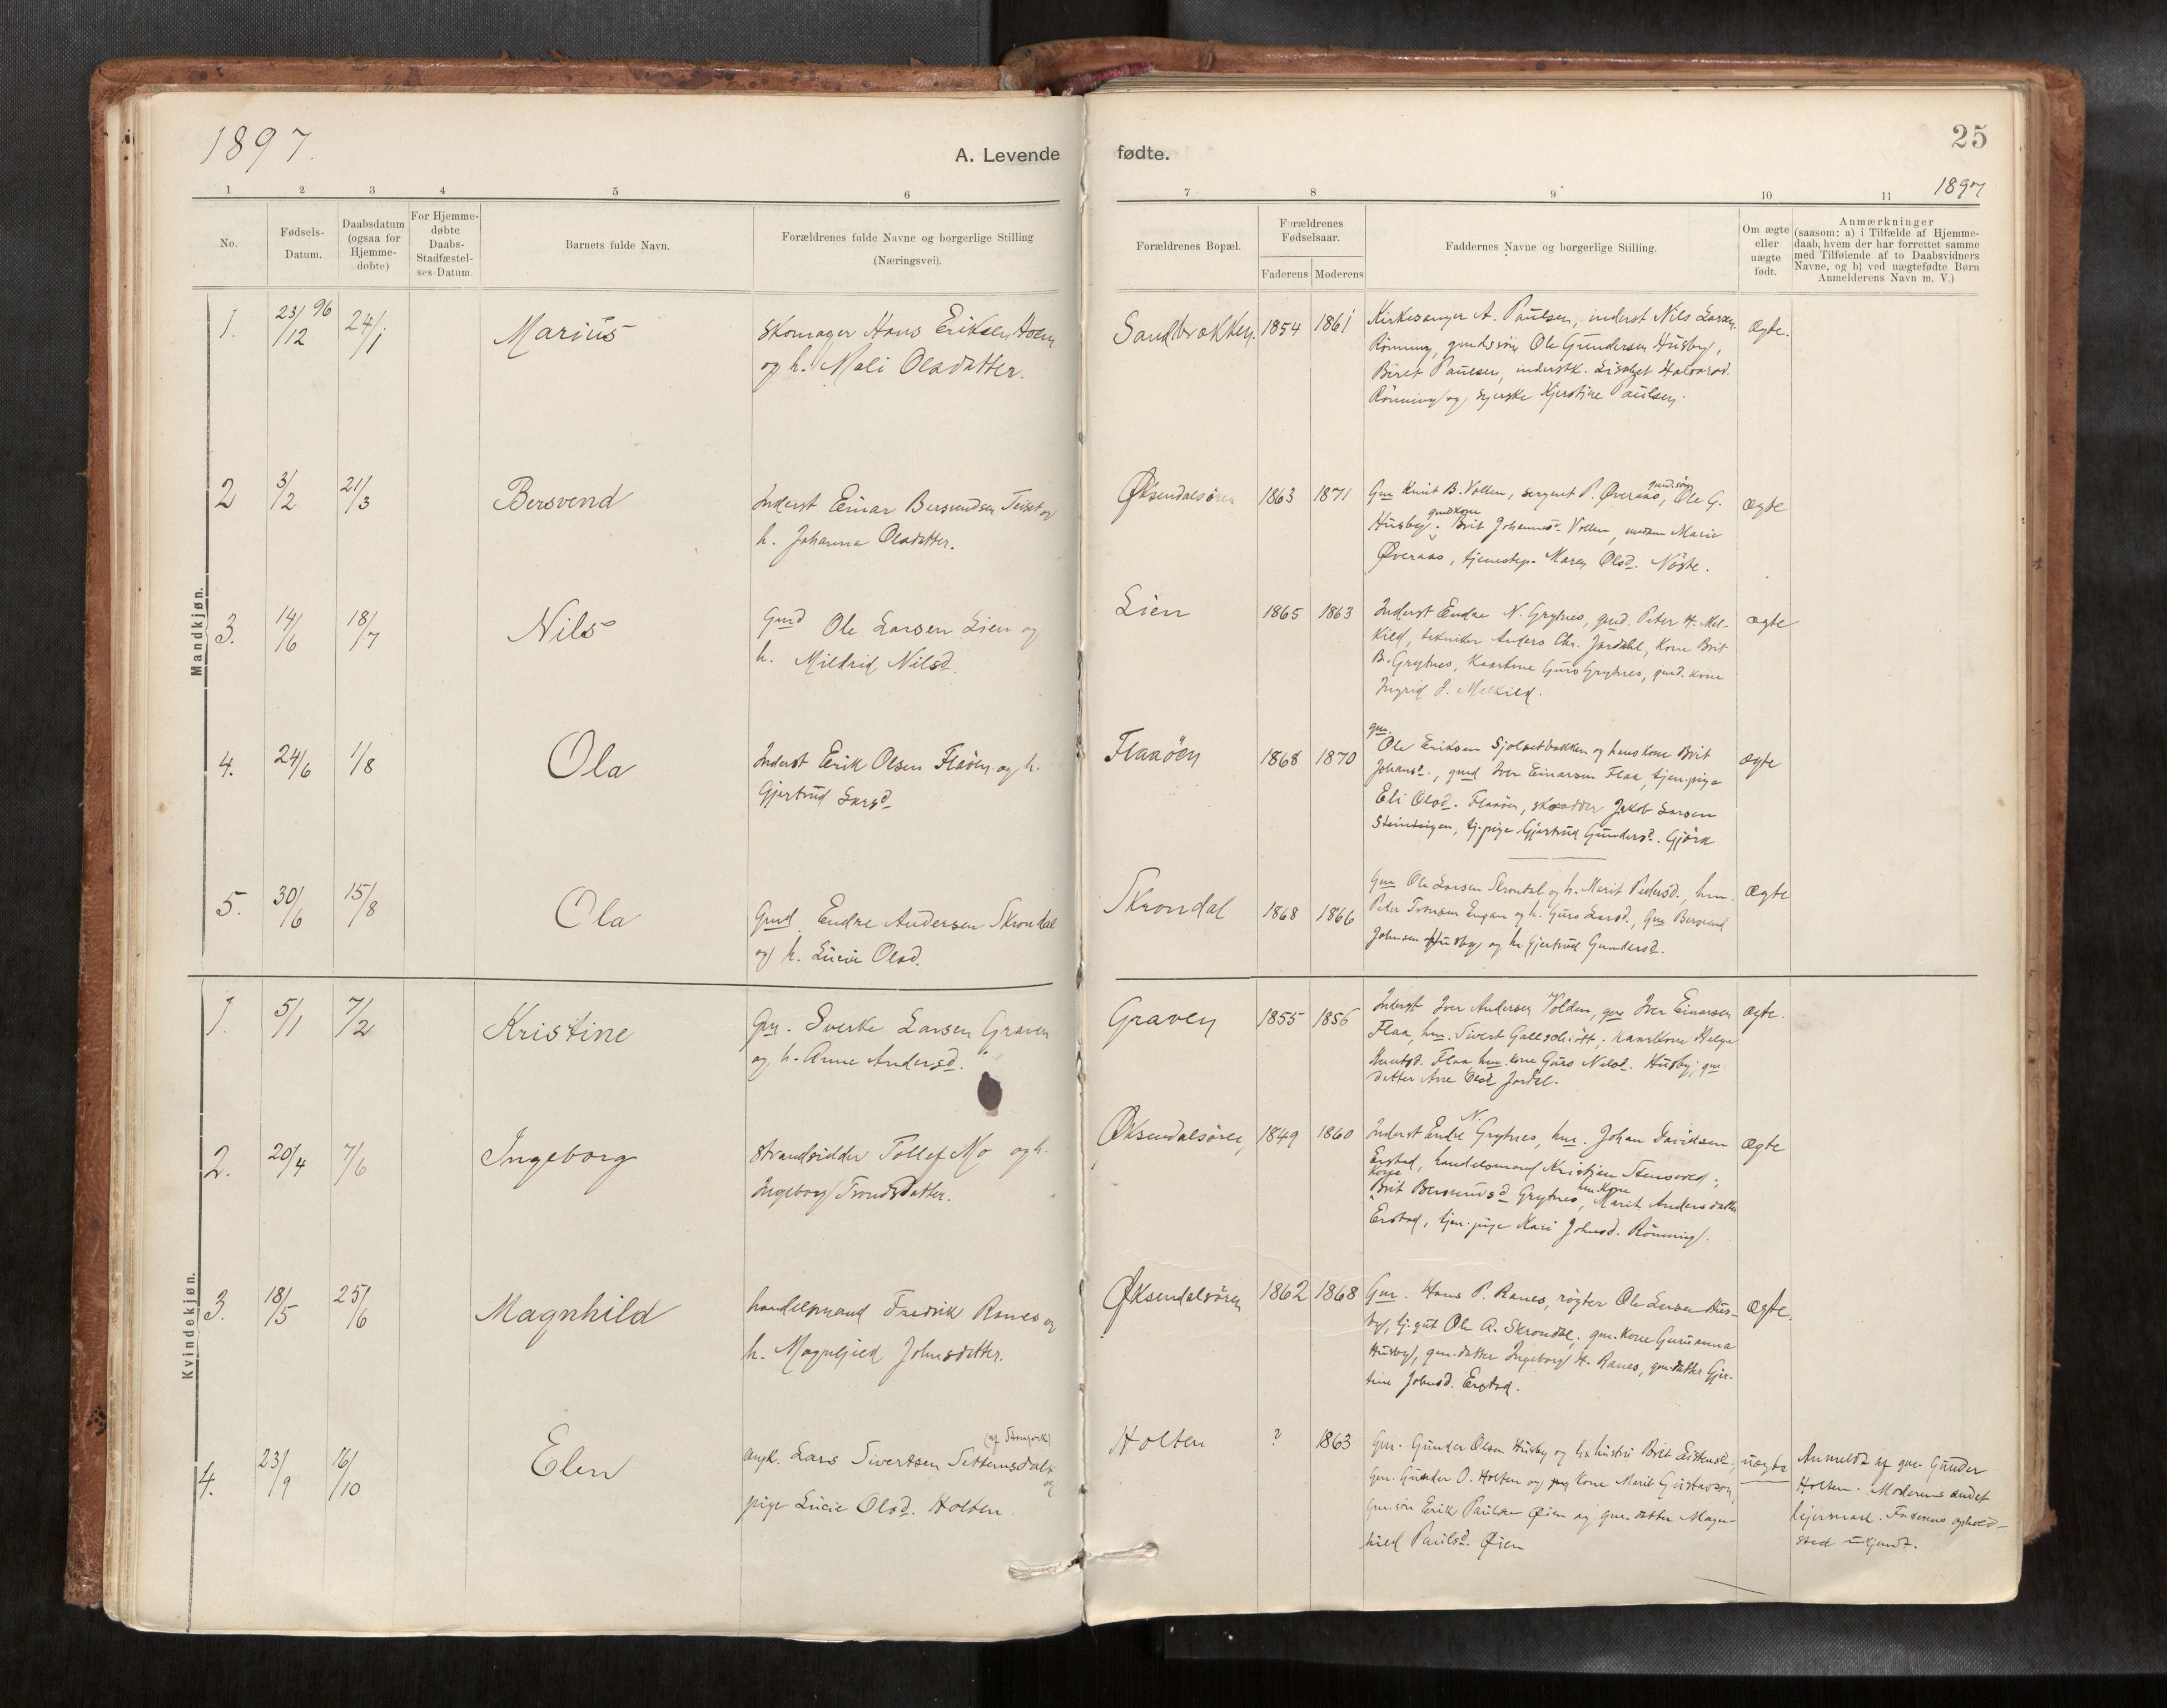 1897.
A. Levende
fødte.
25
1897
1 2 3 4 5 6 7 8 9 10 11
No.
Fødsels-
Datum.
Daabsdatum
(ogsaa for
Hjemme-
døbte)
For Hjemme-
døbte
Daabs-
Stadfæstel-
ses-Datum.
Barnets fulde Navn.
Forældrenes fulde Navne og borgerlige Stilling
(Næringsvei).
Forældrenes Bopæl.
Forældrenes
Fødselsaar.
Faderens Moderens
Faddernes Navne og borgerlige Stilling.
Om ægte
eller
uægte
født.
Anmærkninger
(saasom: a) i Tilfælde af Hjemme-
daab, hvem der har forrettet samme
med Tilføiende af to Daabsvidners
Navne, og b) ved uægtefødte Børn
Anmelderens Navn m. V.)
Mandkjøn.
1. 23/12 96 24/1 Marius
Skomager Hans Eriksen Hoem
og h. Mali Olsdatter.
Sandbrækken. 1854 1861
Kirkesanger A. Paulsen, inderst Nils Larsen
Rönning, gmdssön Ole Gundersen Husby,
Beret Paulsen, inderstk. Lisabet Halvorsd.
Rönning og syerske Kjerstine Paulsen.
Ægte.
2 3/2 21/3 Bersvend
Inderst Einar Bersvendsen Teiset og
h. Johanna Olsdatter.
Øksendalsören 1863 1871
gmd.sön
Gm Knut B. Vollen, sergent P. Øveraas, Ole G.
gmdkone
Husby. Brit Johannesd. Vollen, madam Marie
Øveraas, tjenestep. Maren Olsd. Nöste.
Ægte
3. 14/6 18/7 Nils
Gmd Ole Larsen Lien og
h. Mildrid Nilsd.
Lien 1865 1863
Inderst Endre N. Grytnes, gmd. Peter H. Mel-
kild, tekniker Anders Chr. Jordahl, Kone Brit
B. Grytnes, Kaarkone Guro Grytnes, gmd. kone
Ingrid J. Melkild.
ægte
4. 24/6 1/8 Ola
Inderst Erik Olsen Flaöen og h.
Gjertrud Larsd
Flaaöen 1868 1870
gm.
Ole Eriksen Sjölsetbakken og hans kone Brit
Johansd., gmd Iver Einarsen Flaa, tjen.pige
Eli Olsd. Flaaöen, skrædder Jakob Larsen
Steinteigen, tj.pige Gjertrud Gundersd. Gjöra
ægte
5. 30/6 15/8 Ola
Gmd. Endre Andersen Skrondal
og h. Lucie Olsd.
Skrondal 1868 1866
Gm Ole Larsen Skrondal og h. Marit Pedersd., hm.
Peter Tronsen Engan og h. Guro Larsd., Gm Bersvend
Johnsen Husby og h. Gjertrud Gundersd.
Ægte
Kvindekjøn.
1. 5/1 7/2 Kristine
Gm. Sverke Larsen Graven
og h. Anne Andersd.
Graven 1855 1856
Inderst Iver Andersen Volden, gm Iver Einarsen
Flaa, hm. Sivert Gallschiött, kaarkone Helga
Knutsd. Flaa hm. kone Guro Nilsd. Husby; gm
datter Ane Olsd Jordal.
Ægte.
2. 20/4 7/6 Ingeborg
Strandsidder Tollef Mo og h.
Ingeborg Trondsdatter.
Øksendalsören, 1849 1860
N.
Inderst Endre Grytnes, hm. Johan Davidsen
Erstad, handelsmand Kristian Stensvold;
Kone hm. kone
Brit Bersvendsd Grytnes, Marit Andersdatter
Erstad, tjen. pige Kari Johnsd. Rönning.
Ægte
3. 18/5 25/6 Magnhild
handelsmand Fredrik Ranes og
h. Magnhild Johnsdatter.
Øksendalsören 1862 1868
Gm. Hans P. Ranes, rögter Ole Larsen Hus-
by, tj.gut Ole A. Skrondal, gm. kone Guruanna
Husby, gm. datter Ingeborg H. Ranes, gm datter Gjer-
tine Johnsd. Erstad.
Ægte.
4. 23/9 16/10 Elen
(af Stangvik)
ungk. Lars Sivertsen Settemsdal
og
pige Lucie Olsd. Holten
Holten ? 1863
Gm. Gunder Olsen Husby og hustru Brit Eistensd.,
Gm. Gunder O. Holten og kone Marit Gustavsen,
Gm.sön Erik Paulsen Øien og gm. datter Magn-
hild Paulsd. Øien
uægte
Anmeldt af gm. Gunder
Holten. Moderens andet
leiermaal. Faderens ophold-
sted ukjendt.